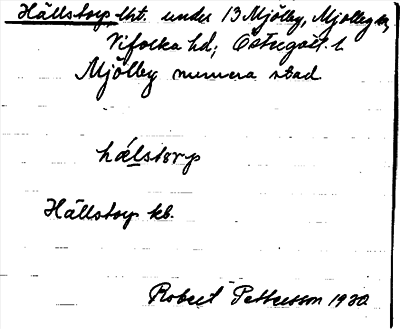 Hällstorp lht. under 13 Mjölby, Mjölby sn,
Vifolka hd; Östergötl. l
Mjölby numera stad
hǽlstɷrp
Hällstorp kb.
Robert Pettersson 1930